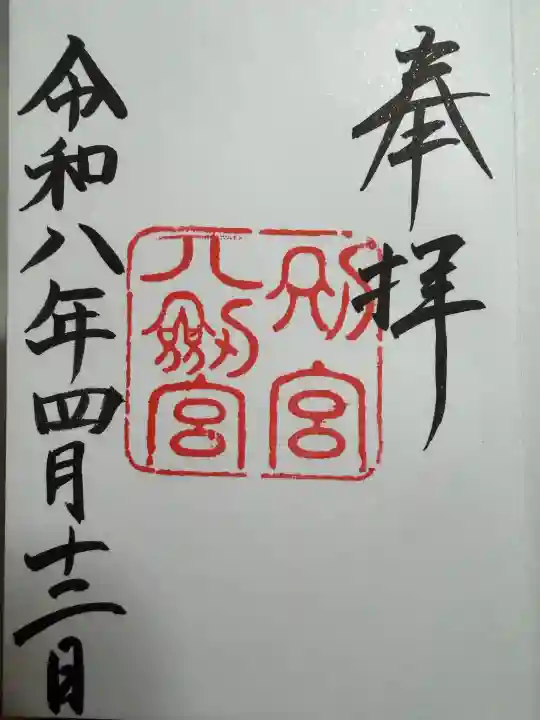 奉拝
別宮
八剱宮
令和八年四月十二日